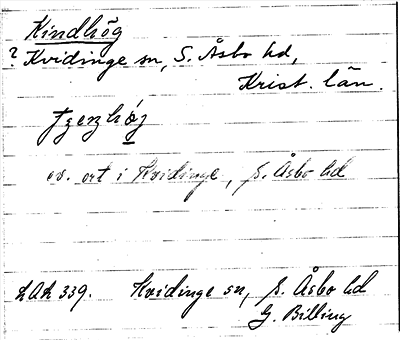 Kindhög
? Kvidinge sn, S. Åsbo hd,
Krist. län.
ev. ort i Kvidinge, S. Åsbo hd
LAL 339. Kvidinge sn, S. Åsbo hd
G. Billing